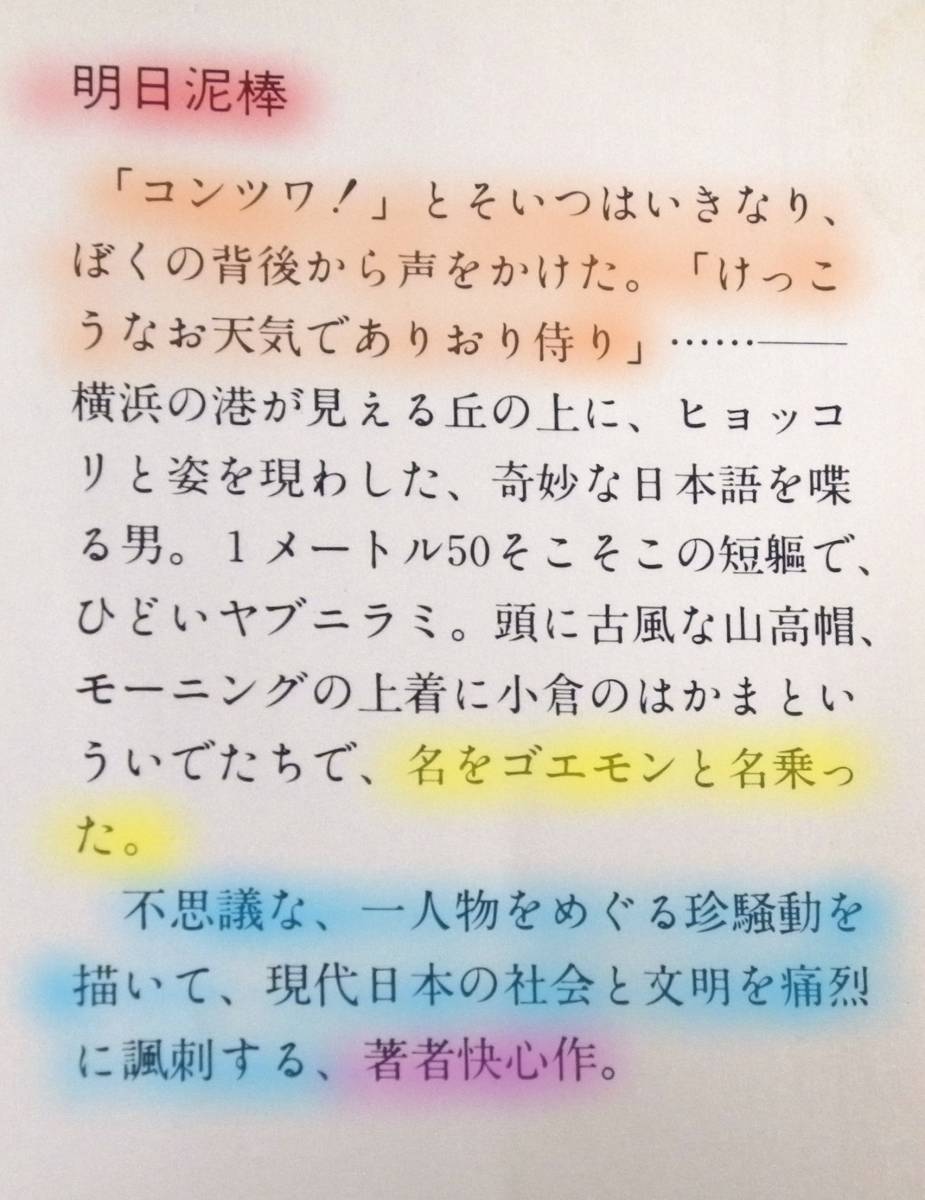 明日泥棒
「コンツワ！」とそいつはいきなり、
ぼくの背後から声をかけた。「けっこ
うなお天気でありおり侍り」……──
横浜の港が見える丘の上に、ヒョッコ
リと姿を現わした、奇妙な日本語を喋
る男。１メートル50そこそこの短軀で、
ひどいヤブニラミ。頭に古風な山高帽、
モーニングの上着に小倉のはかまとい
ういでたちで、名をゴエモンと名乗っ
た。
不思議な、一人物をめぐる珍騒動を
描いて、現代日本の社会と文明を痛烈
に諷刺する、著者快心作。